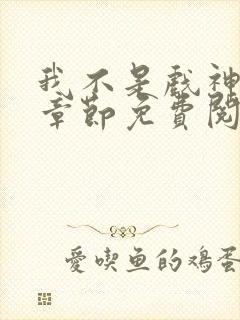 我不是戲神
章節免費閱
愛喫魚的鸡蛋